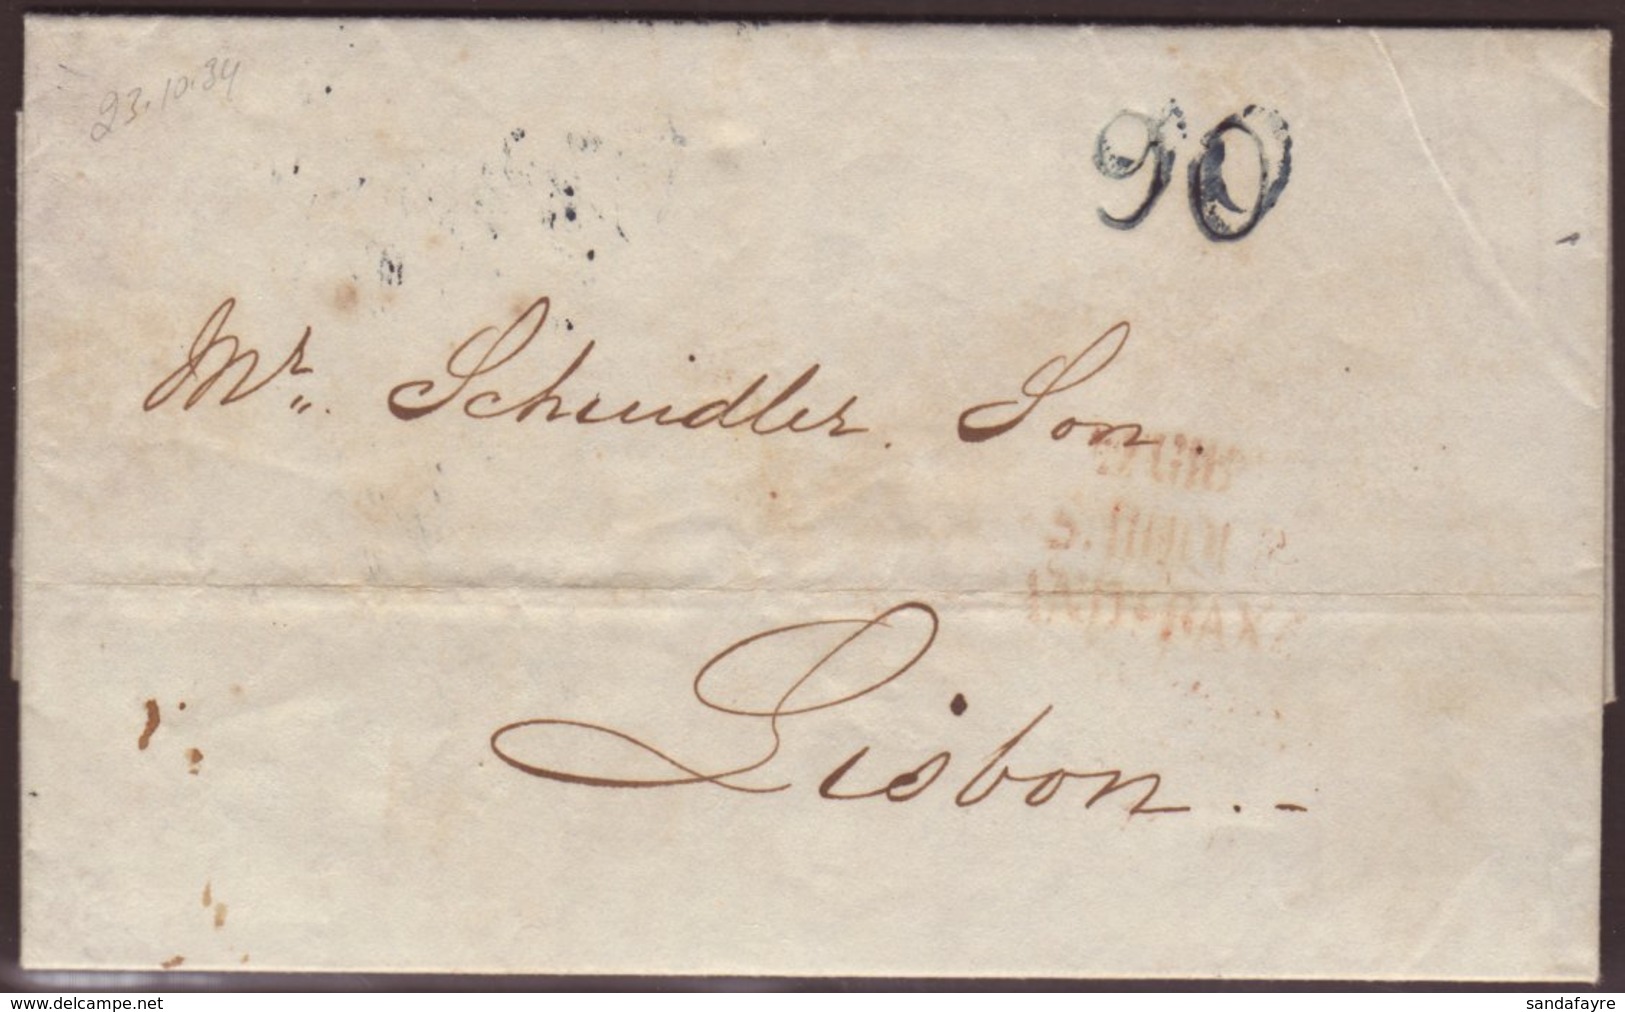 23.10.34
90
Mr. Scheidler. Son.
Lisbon.-
www.delcampe.net
sandafayre